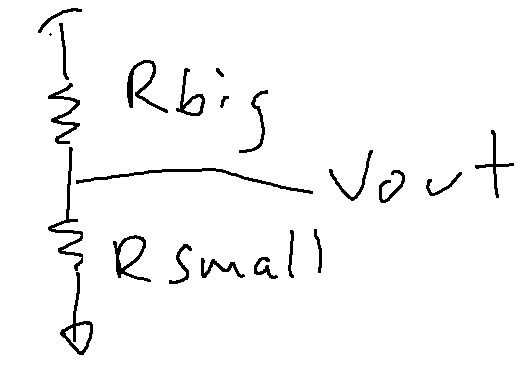 Rbig
Vout
Rsmall